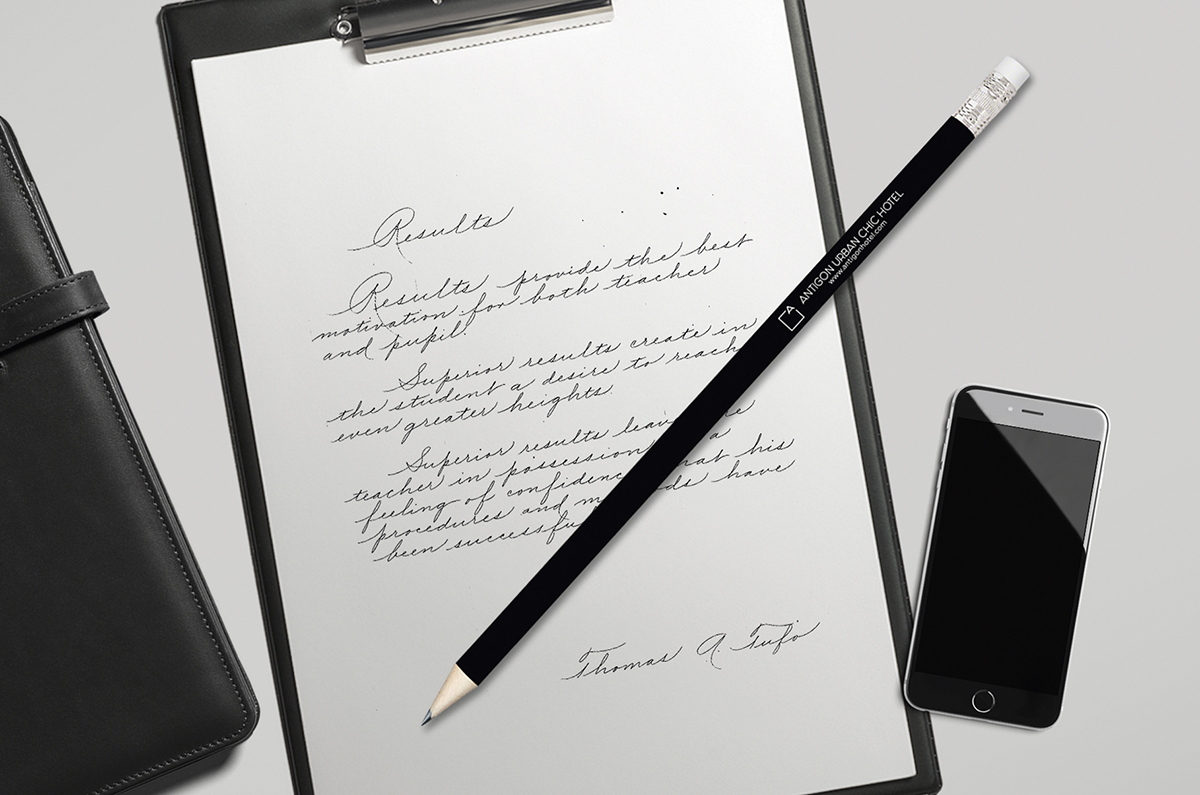 Results
Results provide the best
motivation for both teacher
and pupil.
Superior results create in
the student a desire to reach
even greater heights.
Superior results leav
teacher in possession a
feeling of confidenc hat his
procedures and have
been successfu
Thomas A. Tufo
A
ANTIGON URBAN CHIC HOTEL
www.antigonhotel.com